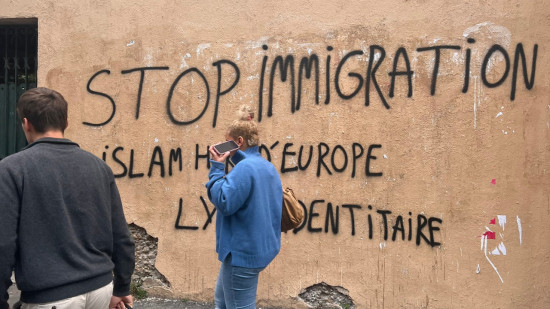 STOP IMMIGRATION
ISLAM H D'EUROPE
LY DENTITAIRE